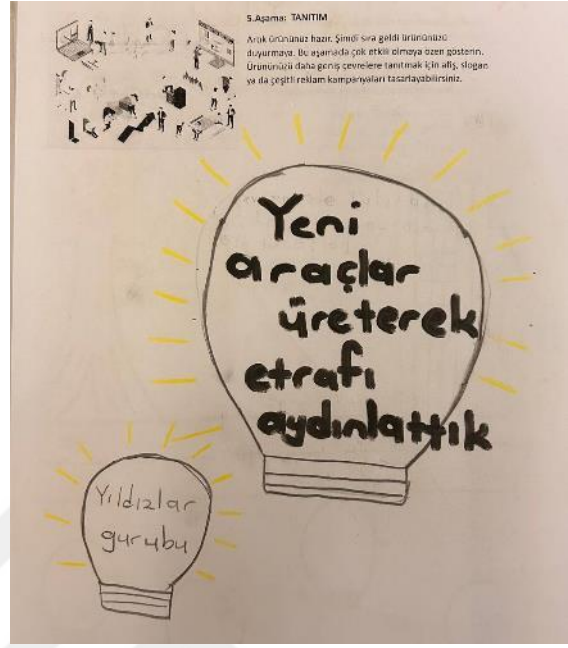 5.Aşama: TANITIM
Artık ürününüz hazır. Şimdi sıra geldi ürününüzü
duyurmaya. Bu aşamada çok etkili olmaya özen gösterin.
Ürününüzü daha geniş çevrelere tanıtmak için afiş, slogan
ya da çeşitli reklam kampanyaları tasarlayabilirsiniz.
Yeni
araçlar
üreterek
etrafı
aydınlattık
Yıldızlar
gurubu